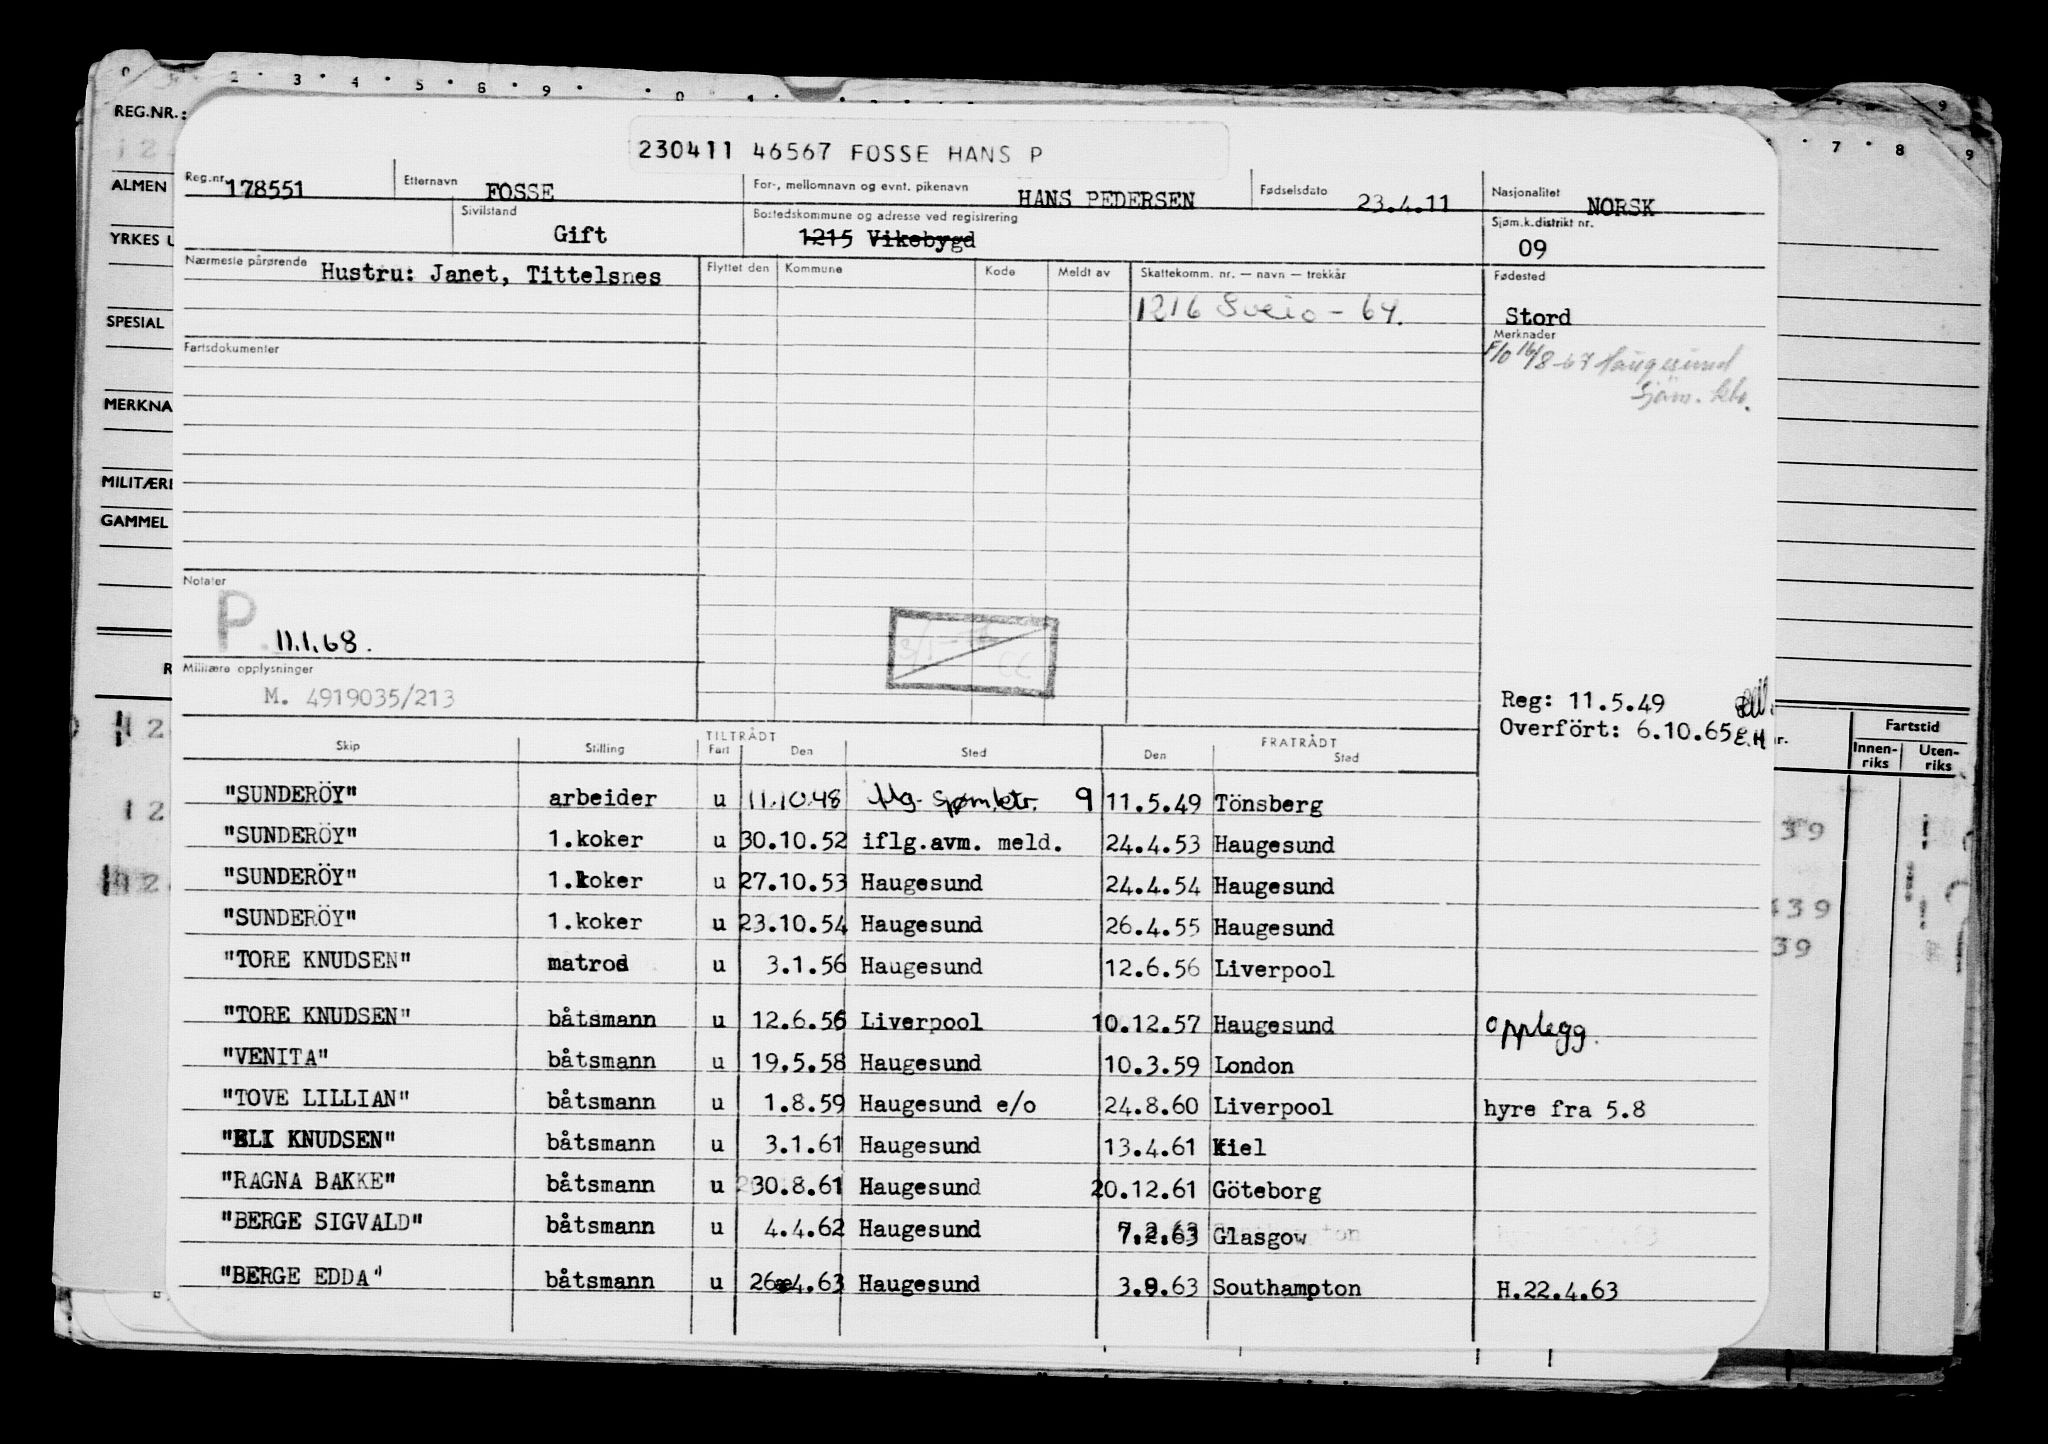 0 2 3 4 5 6 9 0 1
REG.NR.:
ALMEN
YRKES U
SPESIAL
MERKNA
MILITÆRE
GAMMEL
R
230411 46567 FOSSE HANS P
Reg.nr. 178551 Etternavn FOSSE For-, mellomnavn og evnt. pikenavn HANS PEDERSEN Fødselsdato 23.4.11 Nasjonalitet NORSK
Sivilstand Gift Bostedskommune og adresse ved registrering 1215 Vikebygd Sjøm.k.distrikt nr. 09
Nærmeste pårørende Hustru: Janet, Tittelsnes Flyttet den Kommune Kode Meldt av Skattekomm. nr. — navn — trekkår Fødested
1216 Sveio - 64. Stord
Merknader
F/O 16/8-67 Haugesund
Sjøm. ktr.
Fartsdokumenter
Notater
P 11.1.68.
Militære opplysninger
M. 4919035/213
Reg: 11.5.49
Overført: 6.10.65 E.H
Skip Stilling TILTRÅDT Fart Den Sted FRATRÅDT Den Sted
"SUNDERÖY" arbeider u 11.10.48 iflg. sjømktr. 9 11.5.49 Tönsberg
"SUNDERÖY" 1.koker u 30.10.52 iflg.avm. meld. 24.4.53 Haugesund
"SUNDERÖY" 1.koker u 27.10.53 Haugesund 24.4.54 Haugesund
"SUNDERÖY" 1.koker u 23.10.54 Haugesund 26.4.55 Haugesund
"TORE KNUDSEN" matros u 3.1.56 Haugesund 12.6.56 Liverpool
"TORE KNUDSEN" båtsmann u 12.6.56 Liverpool 10.12.57 Haugesund opplegg.
"VENITA" båtsmann u 19.5.58 Haugesund 10.3.59 London
"TOVE LILLIAN" båtsmann u 1.8.59 Haugesund e/o 24.8.60 Liverpool hyre fra 5.8
"ELI KNUDSEN" båtsmann u 3.1.61 Haugesund 13.4.61 Kiel
"RAGNA BAKKE" båtsmann u 30.8.61 Haugesund 20.12.61 Göteborg
"BERGE SIGVALD" båtsmann u 4.4.62 Haugesund 7.2.63 Glasgow
"BERGE EDDA" båtsmann u 26.4.63 Haugesund 3.9.63 Southampton H.22.4.63
7 8 9
Fartstid
Innen-riks Uten-riks
39
439
39